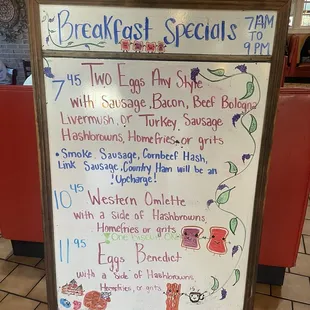 Breakfast Specials 7AM
TO
9PM
7 45 Two Eggs Any Style
with Sausage, Bacon, Beef Bologna
Livermush, or Turkey Sausage
Hashbrowns, Homefries, or grits
• Smoke Sausage, Cornbeef Hash,
Link Sausage, Country Ham will be an
Upcharge!
10 45 Western Omlette
with a side of Hashbrowns,
Homefries or grits
11 95 Eggs Benedict
with a side of Hashbrowns
Homefries, or grits